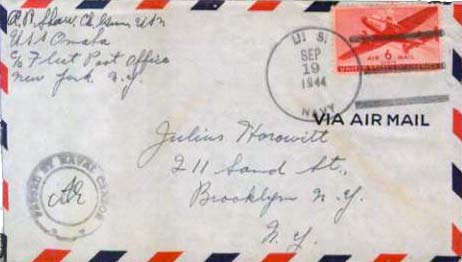 A. R. Slaw. Ch. Gun. USN
USS Omaha
c/o Fleet Post Office
New York. N.Y.
U. S.
SEP
19
1944
NAVY
AIR 6¢ MAIL
UNITED STATES OF AMERICA
VIA AIR MAIL
Julius Horowitt
211 Sand St.,
Brooklyn N.Y.
N.Y.
PASSED BY NAVAL CENSOR